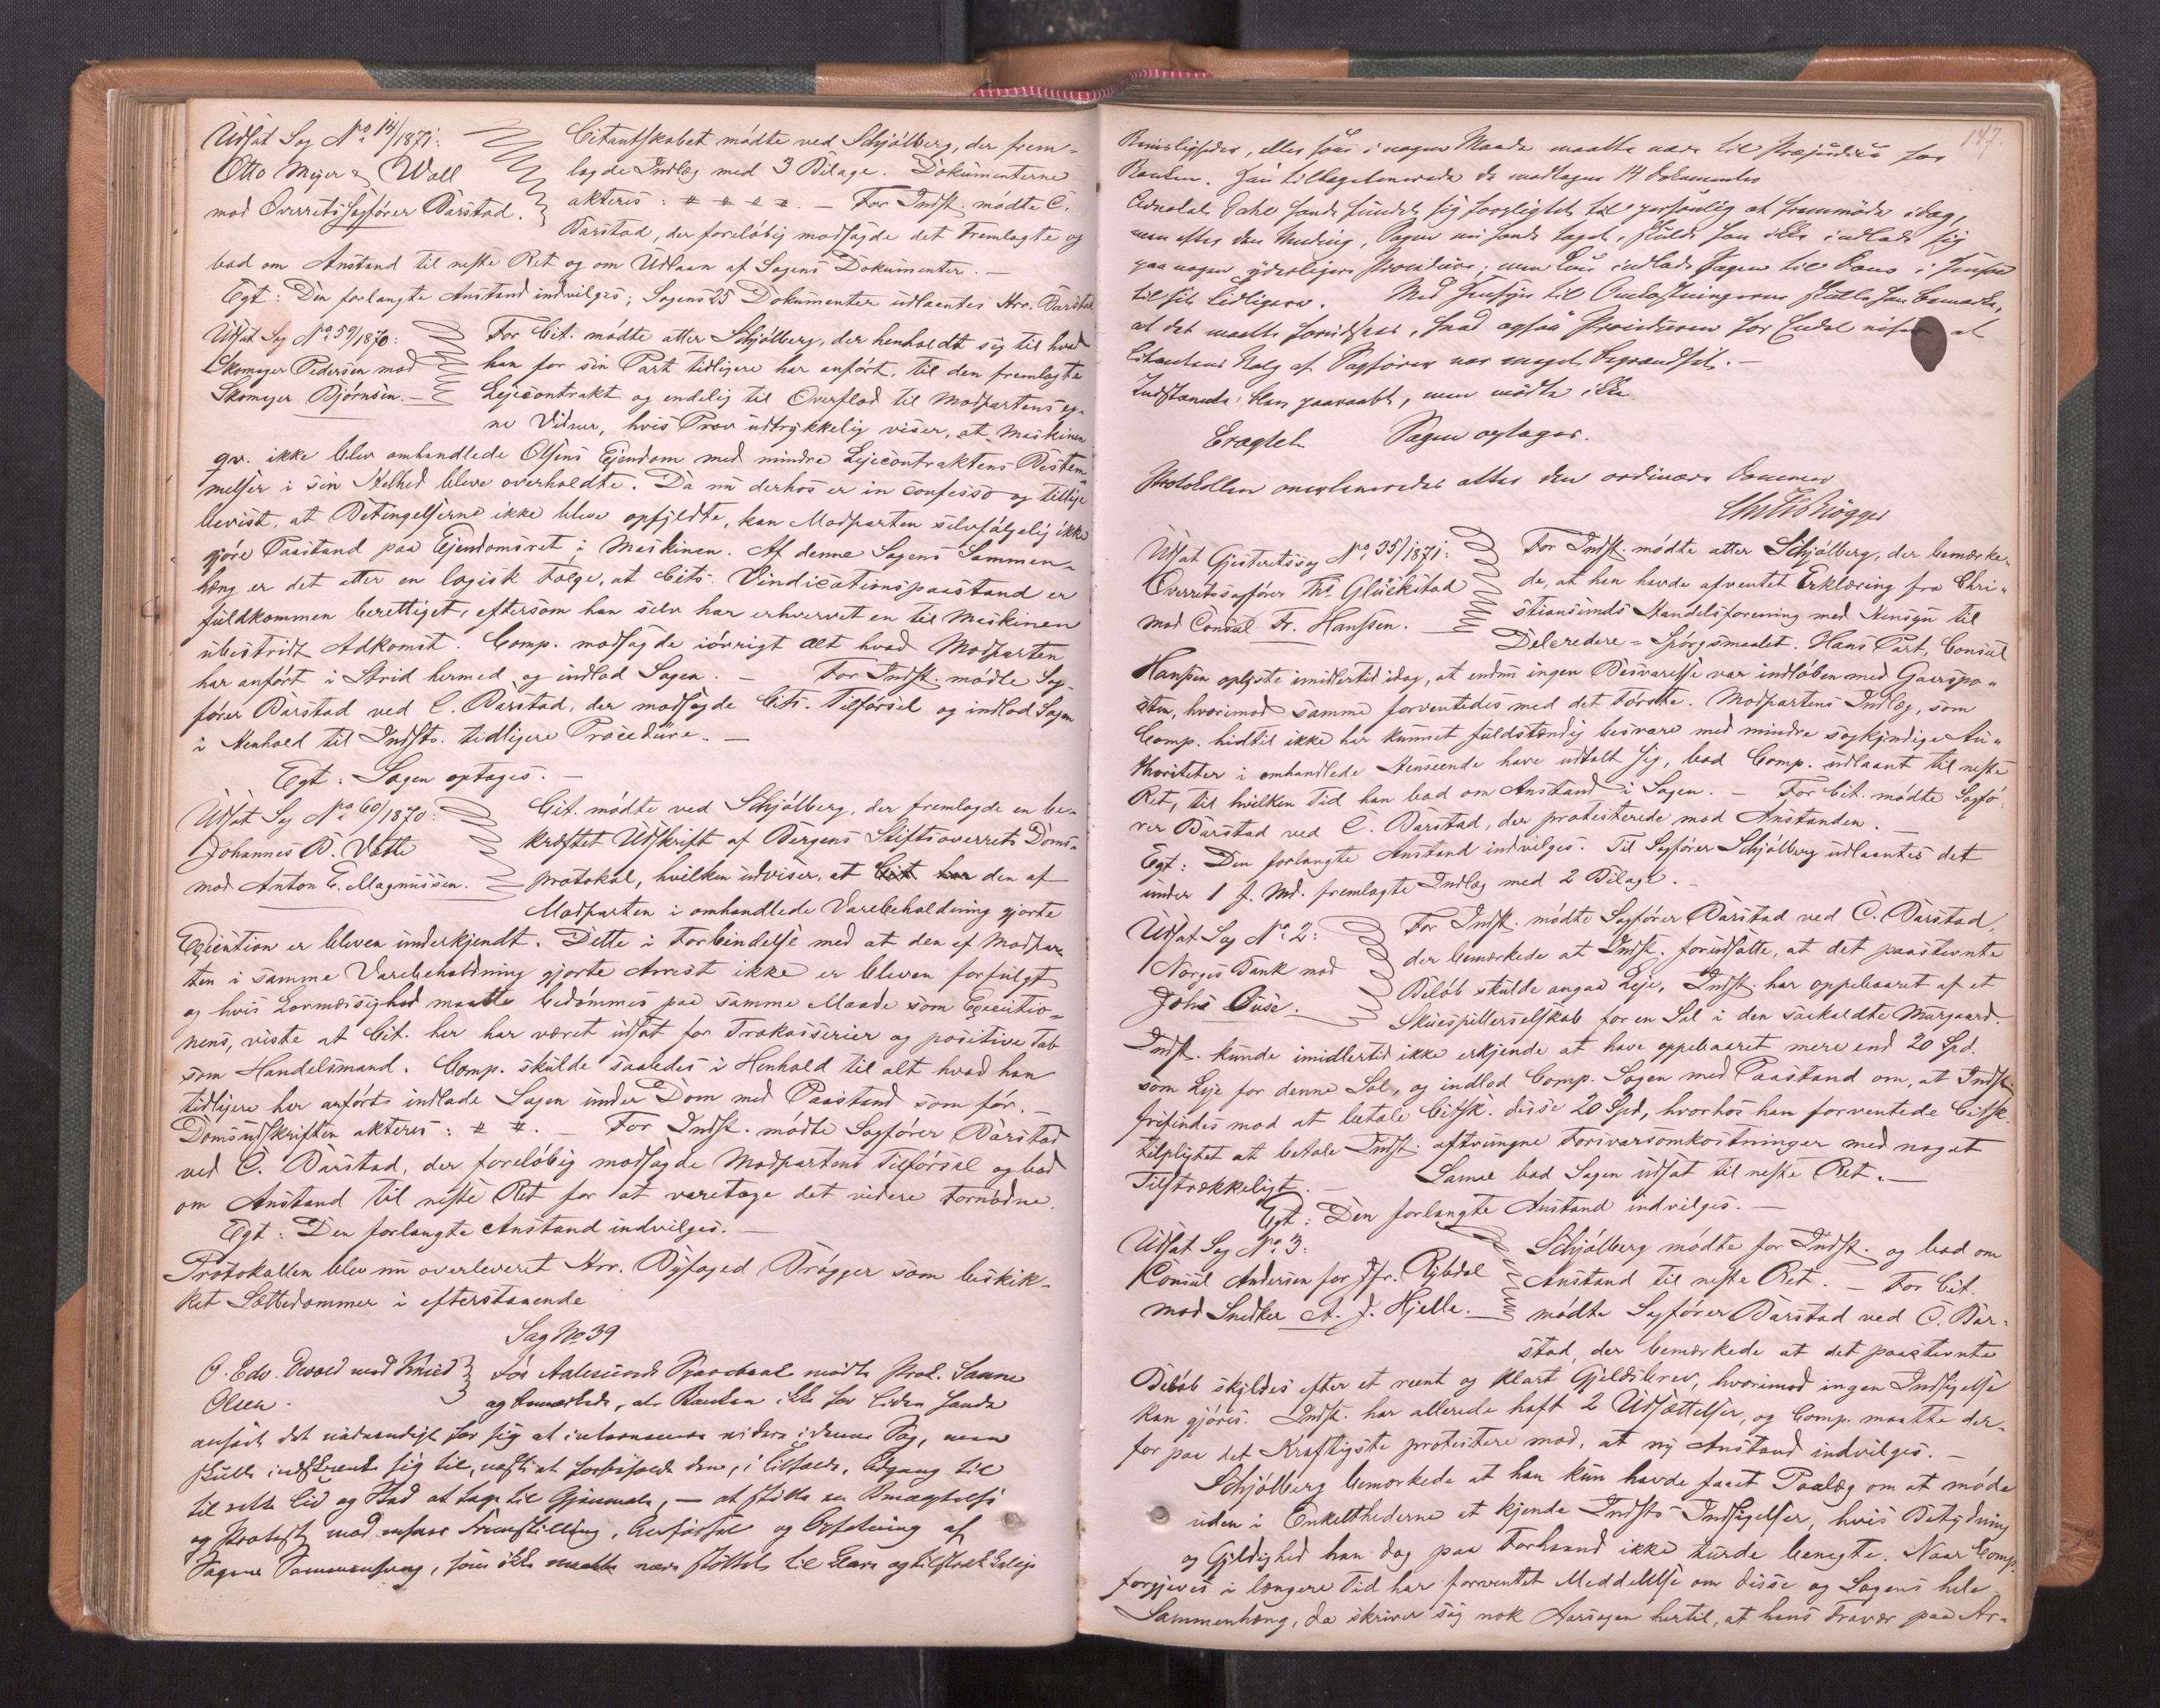 Udsat Sag No 14/1871:
Otto Meyer & Woll
mod Overretssagfører Barstad.
Citantskabet mødte ved Schjølberg, der frem-
lagde Indlæg med 3 Bilage. Dokumenterne
akteres: # # # #. — For Indst. mødte C.
Barstad, der foreløbig modsagde det Fremlagte og
bad om Anstand til neste Ret og om Udlaan af Sagens Dokumenter. —
Egt: Den forlangte Anstand indvilges; Sagens 25 Dokumenter udlaantes Hrr. Barstad.
Udsat Sag No 59/1870:
Skomager Pedersen mod
Skomager Bjørnsen. —
For Cit. mødte atter Schjølberg, der henholdt sig til hvad
han for sin Part tidligere har anført, til den fremlagte
Lejecontrakt og endelig til Overflod til Modpartens eg-
ne Vidner, hvis Prov udtrykkelig viser, at Maskinen
qv. ikke blev omhandlede Olsens Ejendom med mindre Lejecontraktens Bestem-
melser i sin Helhed bleve overholdte. Da nu derhos er in confesso og tillige
bevist, at Betingelserne ikke bleve opfyldte, kan Modparten selvfølgelig ikke
gjøre Paastand paa Ejendomsret i Maskinen. Af denne Sagens Sammen-
hæng er det atter en logisk Følge, at Cits. Vindicationspaastand er
fuldkommen berettiget, eftersom han selv har erhvervet en til Maskinen
ubestridt Adkomst. Comp. modsagde iøvrigt alt hvad Modparten
har anført i Strid hermed og indlod Sagen. — For Indst. mødte Sag-
fører Barstad ved C. Barstad, der modsagde Cits. Tilførsel og indlod Sagen
i Henhold til Indsts. tidligere Procedure. —
Egt: Sagen optages. —
Udsat Sag No 60/1870:
Johannes B. Vatte
mod Anton E. Magnussen.
Cit. mødte ved Schjølberg, der fremlagde en be-
kræftet Udskrift af Bergens Stiftsoverrets Doms-
protokol, hvilken udviser, at Cit. har den af
Modparten i omhandlede Varebeholdning gjorte
Execution er bleven underkjendt. Dette i Forbindelse med at den af Modpar-
ten i samme Varebeholdning gjorte Arrest ikke er bleven forfulgt
og hvis Lovmæssighed maatte bedømmes paa samme Maade som Executio-
nens, viste at Cit. her har været udsat for Trakasserier og positive Tab
som Handelsmand. Comp. skulde saaledes i Henhold til alt hvad han
tidligere har anført indlade Sagen under Dom med Paastand som før. —
Domsudskriften akteres: # #. — For Indst. mødte Sagfører Barstad
ved C. Barstad, der foreløbig modsagde Modpartens Tilførsel og bad
om Anstand til neste Ret for at varetage det videre Fornødne.
Egt: Den forlangte Anstand indvilges. —
Protokollen blev nu overleveret Hrr. Byfoged Brøgger som beskik-
ket Sættedommer i efterstaaende
Sag No 39
O. Edv. Devold mod Knud
Olsen.
For Aalesunds Sparebank mødte Prok. Sanne
og bemærkede, at Banken ikke for Tiden havde
anseet det nødvendigt for sig at intervenere videre i denne Sag, men
skulle indskrænke sig til, næst at forbeholde den, i Tilfælde, Adgang til
til rette Tid og Sted at tage til Gjenmæle, — at stille en Benægtelse
og Protest mod enhver Fremstilling, Anførsel og Opfatning af
Sagens Sammenhæng, som ikke maatte være støttet til klare og tilstrækkelige
147.
Bevisligheder, eller som i nogen Maade maatte være til Præjudice for
Banken. Han tilbageleverede de modtagne 14 Dokumenter
Advokat Dahl havde fundet sig forpligtet til personlig at fremmøde idag,
men efter den Vending, Sagen nu havde taget, skulde han ikke indlade sig
paa nogen yderligere Procedure; men kun indlade Sagen til Doms i Henhold
til sit Tidligere. Med Hensyn til Omkostningerne skulle han bemærke,
at det maatte forudsees, hvad ogsaa Proceduren for Endel viser at
Citantens Valg af Sagfører var meget begrændset. —
Indstævnte blev paaraabt, men mødte ikke
Eragtet Sagen optages.
Protokollen overleveredes atter den ordinære Dommer
Udsat Gjesteretssag No 35/1871:
Overretssagfører Ths. Glückstad
mod Consul Fr. Hanssen.
For Indst. mødte atter Schjølberg, der bemærke-
de, at han havde afventet Erklæring fra Chri-
stiansunds Handelsforening med Hensyn til
Delcredere-Spørgsmaalet. Hans Part, Consul
Hanssen oplyste imidlertid idag, at endnu ingen Besvarelse var indløben med Gaarspo-
sten, hvorimod samme forventedes med det Første. Modpartens Indlæg, som
Comp. hidtil ikke har kunnet fuldstændig besvare med mindre sagkyndige Au-
thoriteter i omhandlede Henseende have udtalt sig, bad Comp. udlaant til neste
Ret, til hvilken Tid han bad om Anstand i Sagen. — For Cit. mødte Sagfø-
rer Barstad ved C. Barstad, der protesterede mod Anstanden. —
Egt: Den forlangte Anstand indvilges. Til Sagfører Schjølberg udlaantes det
under 1 f. Md. fremlagte Indlæg med 2 Bilage. —
Udsat Sag No 2:
Norges Bank mod
Johs Buse.
For Indst. mødte Sagfører Barstad ved C. Barstad,
der bemærkede at Indst. forudsatte, at det paastevnte
Beløb skulde angaa Leje, Indst. har oppebaaret af et
Skuespillerselskab for en Sal i den saakaldte Murgaard.
Indst. kunde imidlertid ikke erkjende at have oppebaaret mere end 20 Spd.
som Leje for denne Sal, og indlod Comp. Sagen med Paastand om, at Indst.
frifindes mod at betale Citsk. disse 20 Spd, hvorhos han forventede Citsk.
tilpligtet at betale Indst. aftvungne Forsvarsomkostninger med noget
Tilstrækkeligt. — Samme bad Sagen udsat til neste Ret. —
Egt: Den forlangte Anstand indvilges. —
Udsat Sag No 3:
Consul Andersen for Jfr. Rybdal
mod Snedker A. J. Hjelle. —
Schjølberg mødte for Indst. og bad om
Anstand til neste Ret. — For Cit.
mødte Sagfører Barstad ved C. Bar-
stad, der bemærkede at det paastevnte
Beløb skyldes efter et rent og klart Gjeldsbrev, hvorimod ingen Indsigelse
kan gjøres. Indst. har allerede haft 2 Udsættelser, og Comp. maatte der-
for paa det Kraftigste protestere mod, at ny Anstand indvilges. —
Schjølberg bemærkede at han kun havde faaet Paalæg om at møde
uden i Enkelthederne at kjende Indsts Indsigelser, hvis Betydning
og Gyldighed han dog paa Forhaand ikke turde benegte. Naar Comp.
forgjeves i længere Tid har forventet Meddelelse om disse og Sagens hele
Sammenhæng, da skriver sig nok Aarsagen hertil, at hans Fravær paa Ar-